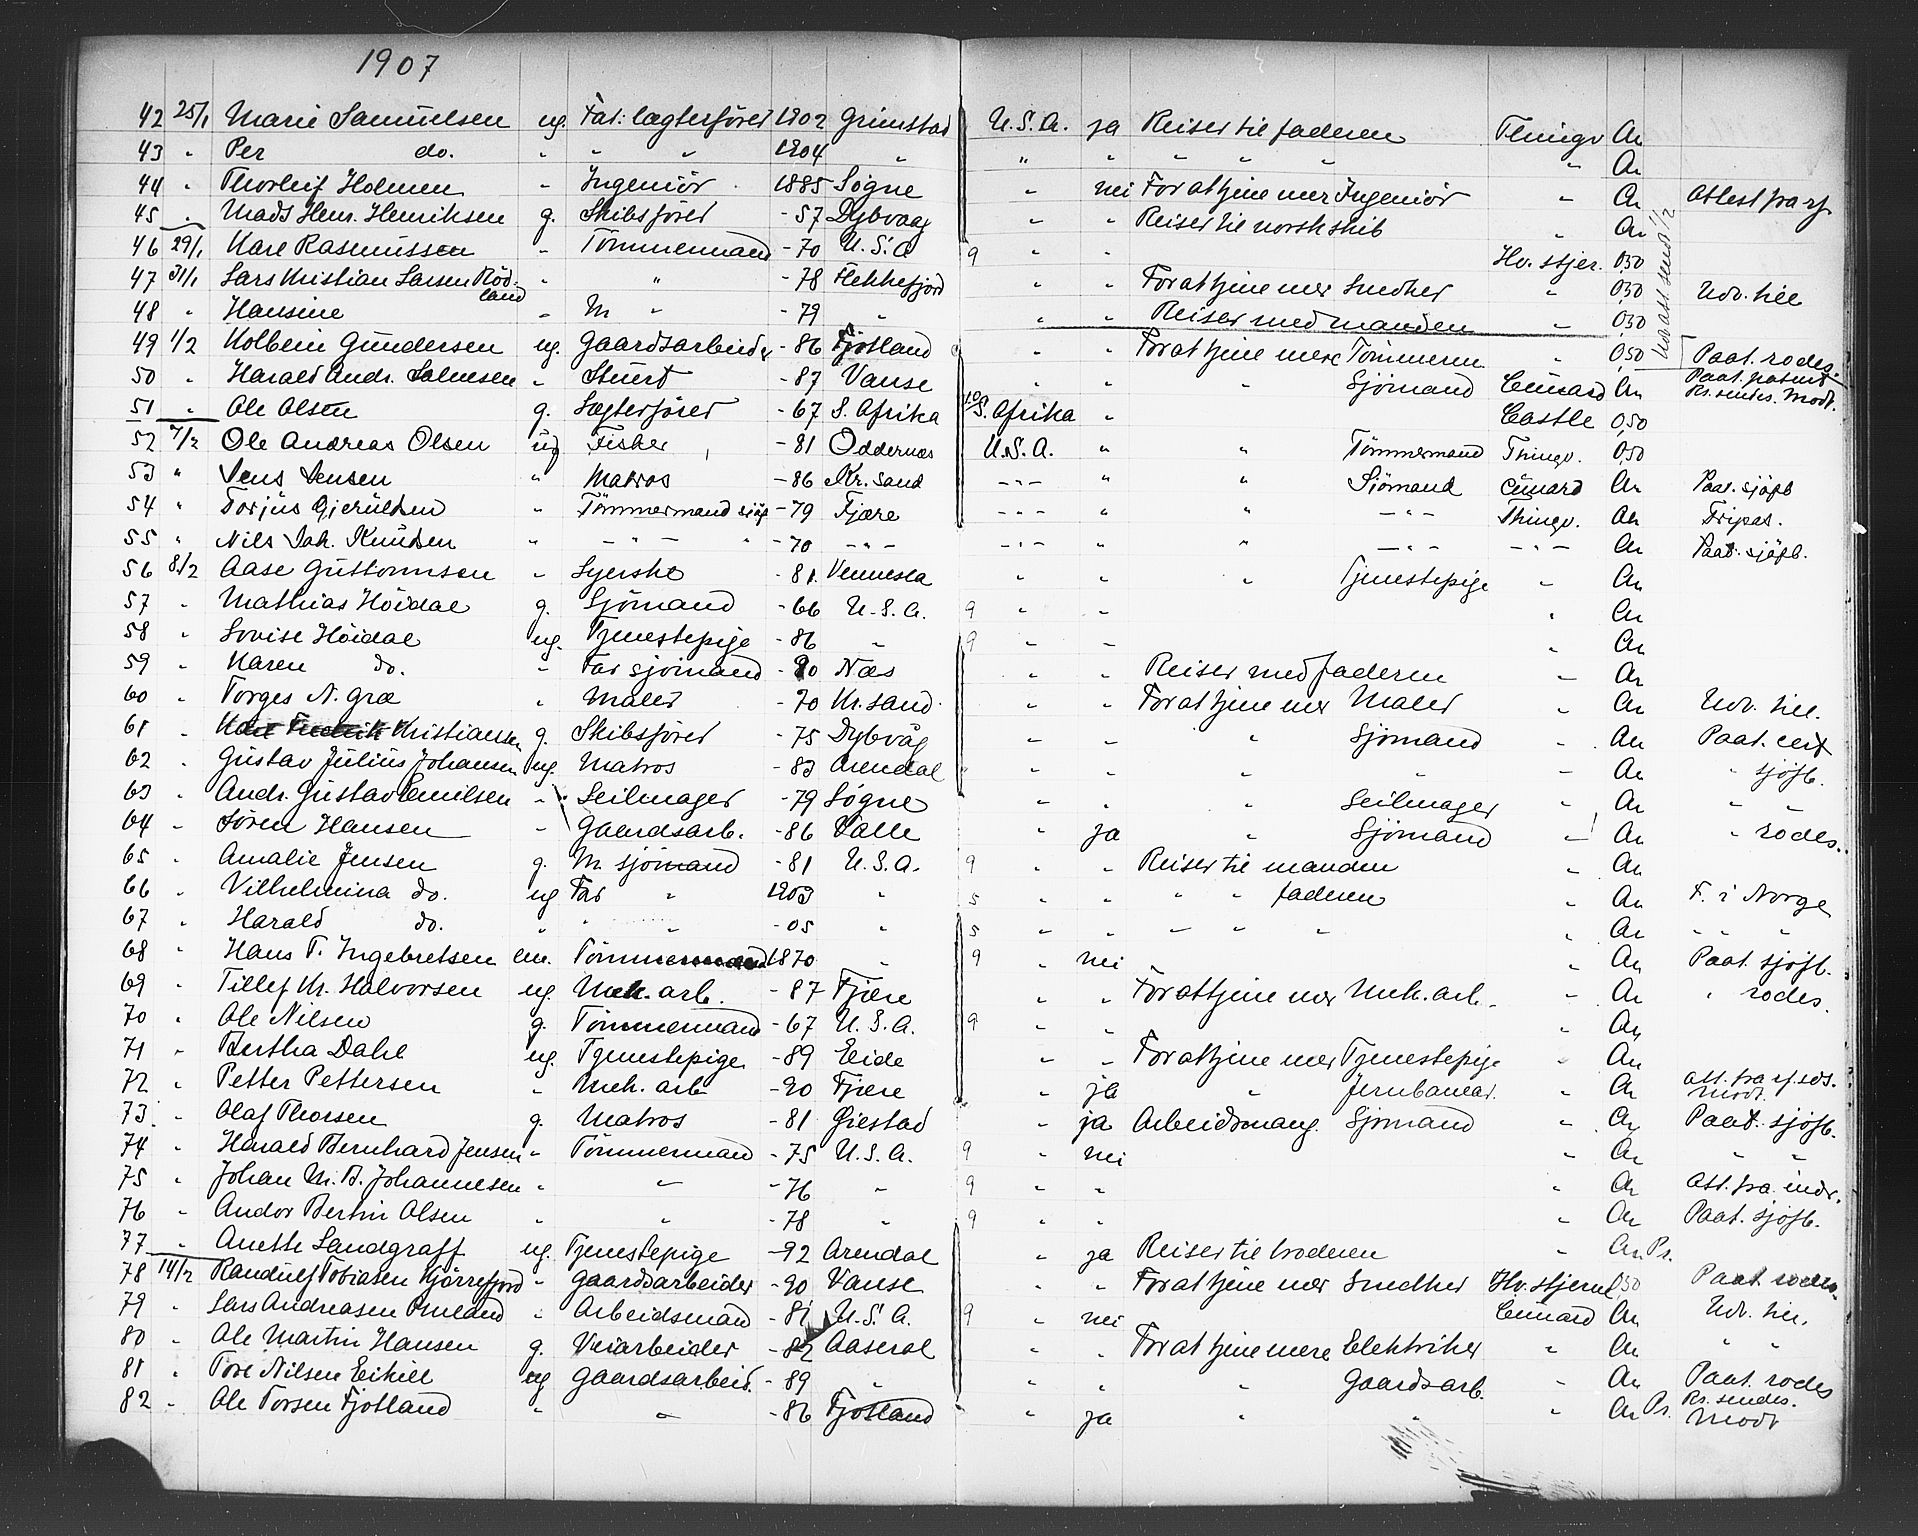 1907
42 25/1 Marie Samuelsen ug. Far: lægterfører 1902 Grimstad U.S.A. ja Reiser til faderen Thingv An
43 " Per do. " " " 1904 " " " " " " " An
44 " Thorleif Holmen " Ingeniör 1885 Søgne " nei For at tjene mer Ingeniör " An attest fra sf
45 " Mads Henr. Henriksen g. Skibsfører -57 Dybvaag " " Reiser til norsk skib " An
46 29/1 Kare Rasmussen " Tömmermand -70 U.S.A 9 " " Hv. stjer. 0,50
47 31/1 Lars Kristian Larsen Rödland " " -78 Flekkefjord " " For at tjene mer Smelter " 0,50 Udv. till
48 " Hansine " M " -79 " " " Reiser med manden " 0,50
49 1/2 Kolbein Gundersen ug. Gaardsarbeider -86 Fjotland " " For at tjene mere Tömmerm " 0,50 Paat. rodes.
50 " Harald Andr. Salvesen " Stuert -87 Vanse " " " Sjömand Cunard An Paat. patent Kr. sendes. Modt.
51 " Ole Olsen g. Lægterfører -67 S. Afrika 10 S. Afrika " Castle 0,50
52 7/2 Ole Andreas Olsen ug Fisker -81 Oddernæs U.S.A. " " Tömmermand Thingv. 0,50
53 " Jens Jensen " Matros -86 Kr. sand -"- " " Sjömand Cunard An Paat. sjöfb
54 " Torjus Gjerulsen " Tömmermand sjöf -79 Fjære -"- " " -"- Thingv. An Fripas.
55 " Nils Joh. Knudsen " -"- " -70 -"- -"- " " -"- -"- An Paat. sjöfb.
56 8/2 Aase Guttormsen " Syerske -81 Vennesla " " " Tjenestepige " An
57 " Mathias Höidal g. Sjömand -66 U.S.A. 9 " " " An
58 " Lovise Höidal ug. Tjenestepige -86 " 9 " " " An
59 " Karen do. " Far sjömand -90 Næs " " Reiser med faderen " An
60 " Torges N. Græ " Maler -70 Kr. sand " " For at tjene mer Maler " An Udv. till.
61 " Kristiansen g. Skibsfører -75 Dybvåg " " " Sjömand " An Paat. cert
62 " Gustav Julius Johansen ug. Matros -83 Arendal " " " " " An " sjöfb.
63 " Andr. Gustav Emilsen " Seilmager -79 Søgne " " " Seilmager " An " "
64 " Sören Hansen " Gaardsarb. -86 Valle " ja " Sjömand " An " rodes.
65 " Amalie Jensen g. M. sjömand -81 U.S.A. 9 " " Reiser til manden " An
66 " Vilhelmina do. ug Far " 1903 " 5 " " " " faderen " An F. i Norge
67 " Harald do. " " " -05 " 5 " " " " " " An " " "
68 " Hans T. Ingebretsen em. Tömmermand 1870 " 9 " nei " An Paat. sjöfb.
69 " Tillef Kr. Halvorsen ug. Mek. arb. -87 Fjære " " For at tjene mer Mek. arb. " An " rodes.
70 " Ole Nilsen g. Tömmermand -67 U.S.A. 9 " " An
71 " Bertha Dahl ug. Tjenestepige -89 Eide " " For at tjene mer Tjenestepige " An
72 " Petter Pettersen " Mek. arb -90 Fjære " ja " Jernbanear. " An att. fra sf. sds. Modt.
73 " Olaf Thorsen g. Matros -81 Øiestad " ja Arbeidsmang. Sjömand " An Paat. sjöfb.
74 " Harald Bernhard Jensen " Tömmermand -75 U.S.A. 9 " nei " An " "
75 " Johan M. B. Johannesen " " -76 " 9 " " " An att. fra indr.
76 " Andor Bertin Olsen " " -78 " 9 " " " An Paat. sjöfb.
77 " Anette Landgraff ug. Tjenestepige -92 Arendal " ja Reiser til broderen " An Pr.
78 14/2 Randulf Tobiasen Kjörrefjord " Gaardsarbeider -90 Vanse " " For at tjene mer Smelther Hv. stjerne 0,50 Paat. rodes.
79 " Lars Andreasen Omland " Arbeidsmand -81 U.S.A. 9 " nei Cunard An Udv. till.
80 " Ole Martin Hansen g. Veiarbeider -82 Aaseral " " For at tjene mere Elektriker " An " "
81 " Tore Nilsen Eikill ug Gaardsarbeid. -89 " " " " Gaardsarb. " An Paat. rodes
82 " Ole Torsen Fjotland " " -86 Fjotland " ja " " " An Pr. Kr. sendes. Modt